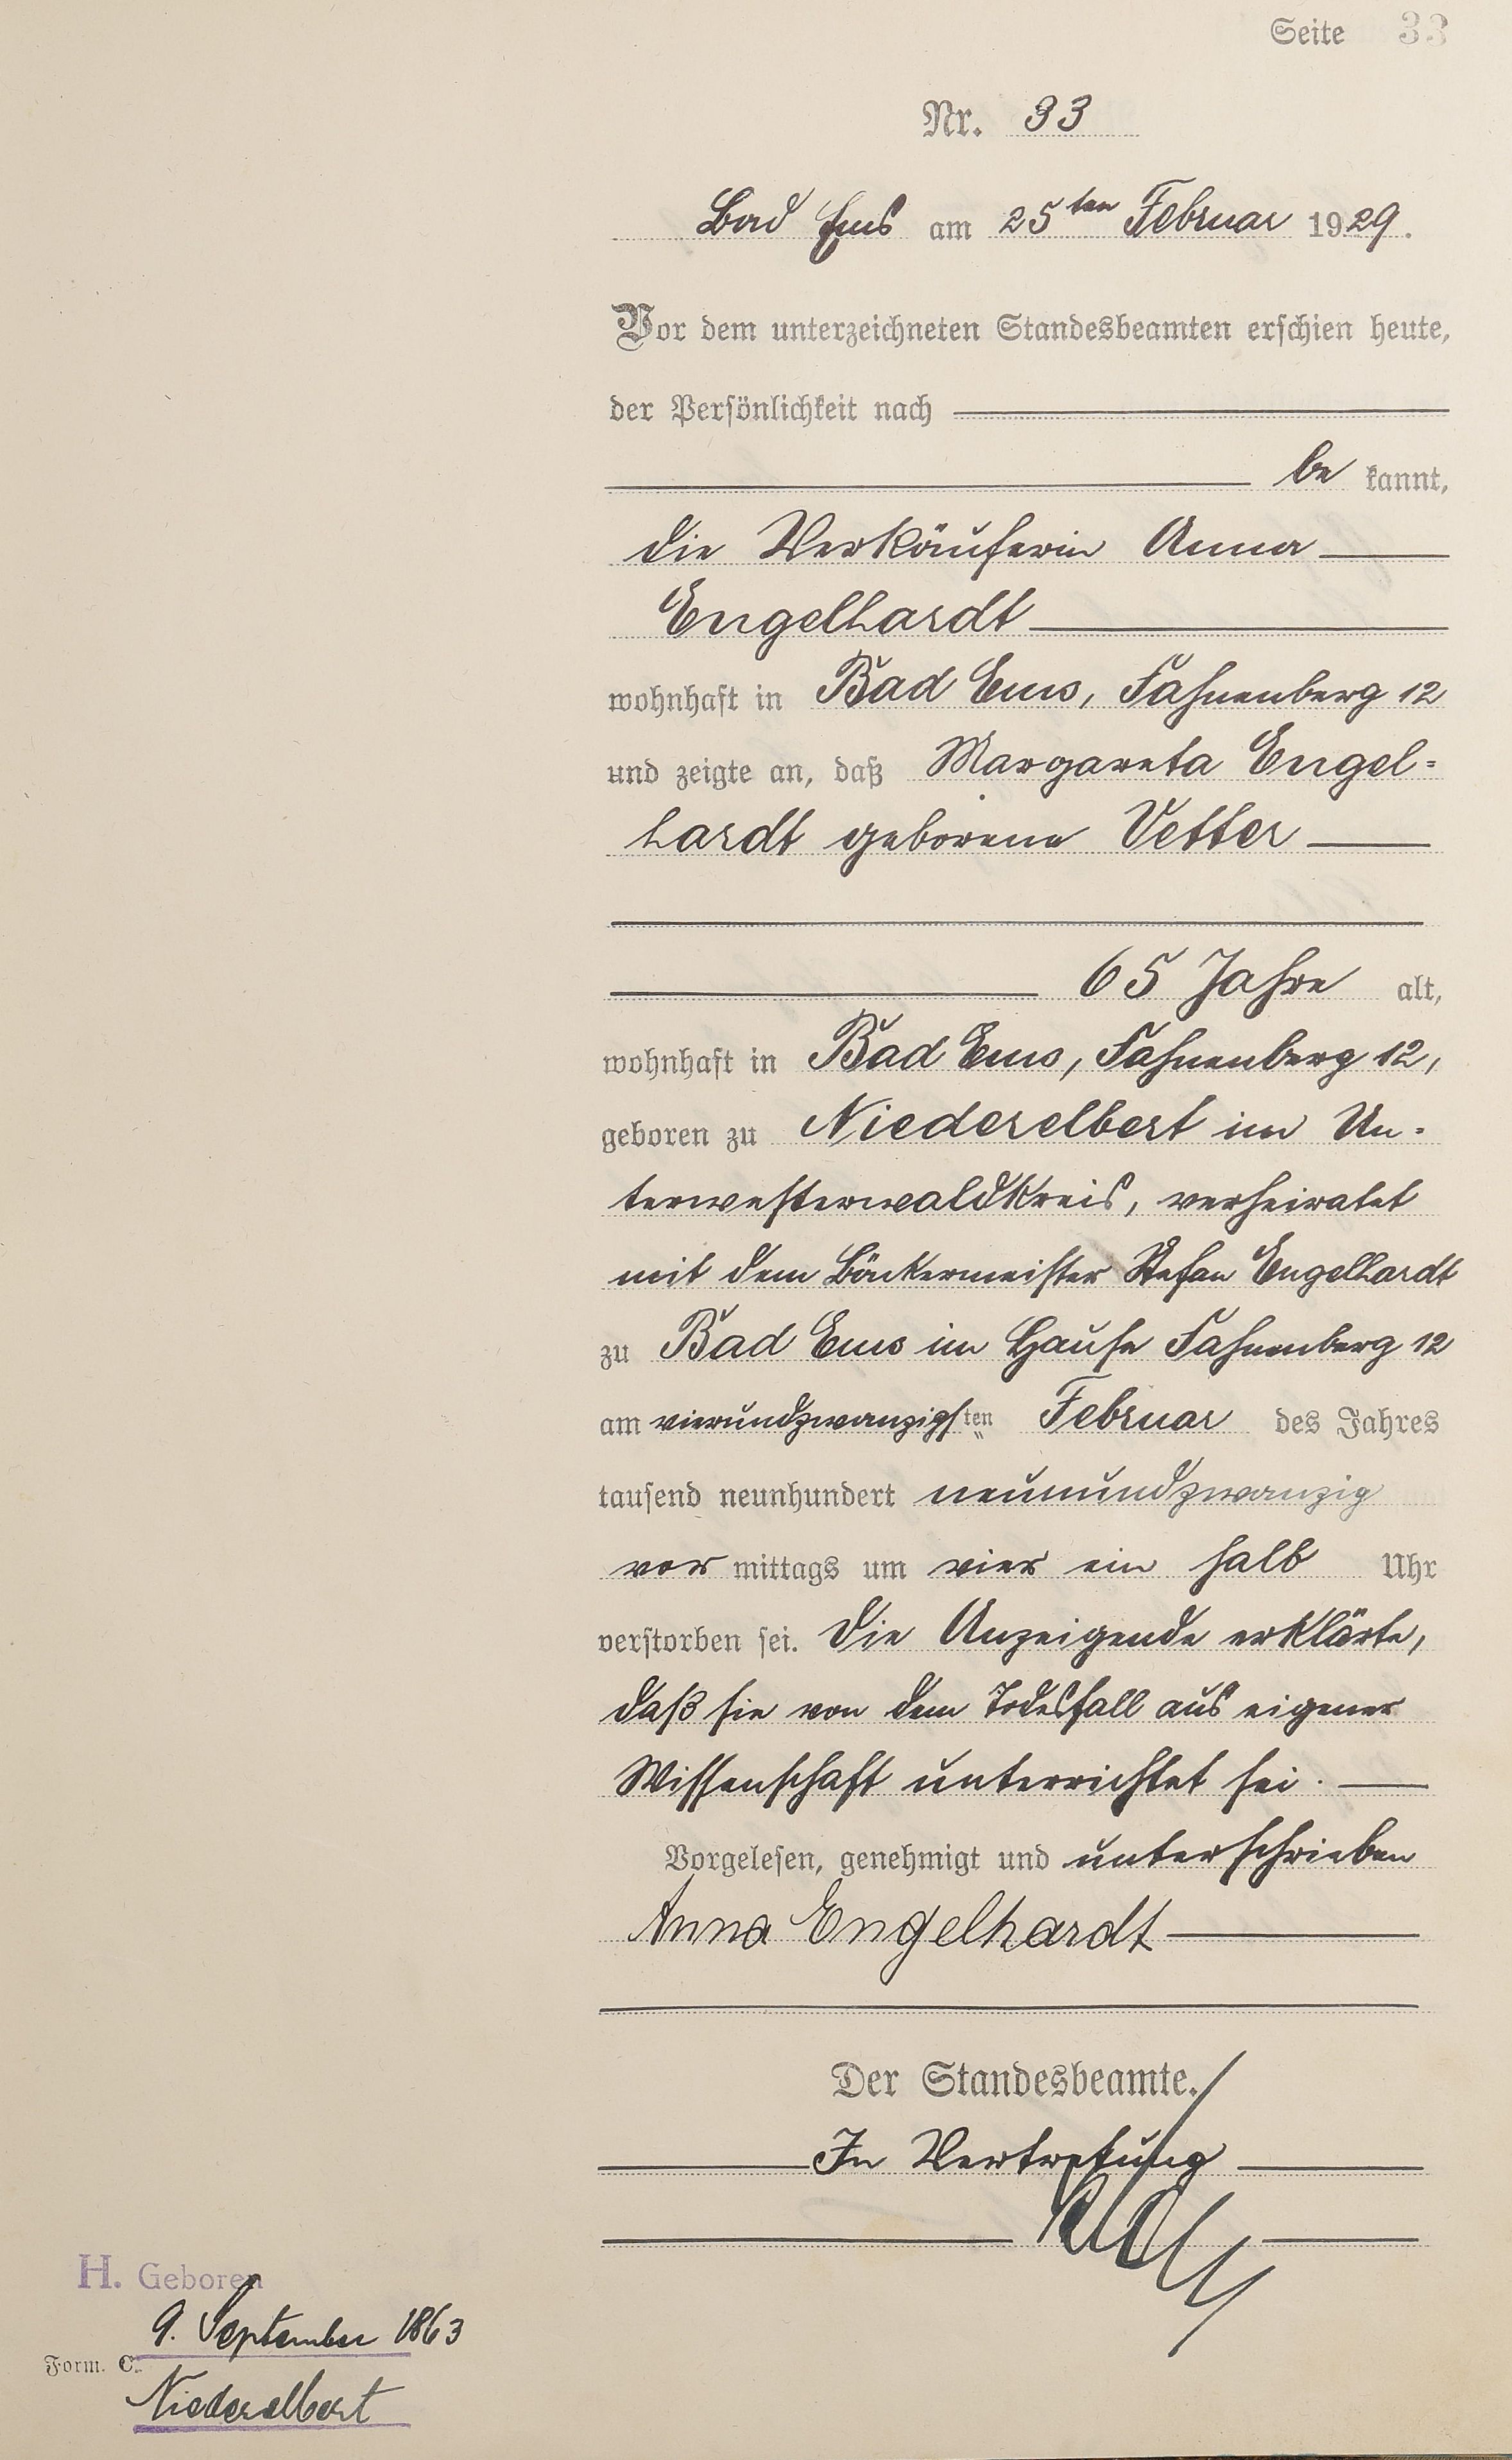 Seite 33
Nr. 33
Bad Ems am 25ten Februar 1929.
Vor dem unterzeichneten Standesbeamten erschien heute,
der Persönlichkeit nach
be kannt,
die Verkäuferin Anna
Engelhardt
wohnhaft in Bad Ems, Fahnenberg 12
und zeigte an, daß Margareta Engel=
hardt geborene Vetter
65 Jahre alt,
wohnhaft in Bad Ems, Fahnenberg 12,
geboren zu Niederelbert im Un-
terwesterwaldkreis, verheiratet
mit dem Bäckermeister Stefan Engelhardt
zu Bad Ems im Hause Fahnenberg 12
am vierundzwanzigsten Februar des Jahres
tausend neunhundert neunundzwanzig
vor mittags um vier ein halb Uhr
verstorben sei. Die Anzeigende erklärte,
daß sie von dem Todesfall aus eigener
Wissenschaft unterrichtet sei.
Vorgelesen, genehmigt und unterschrieben
Anna Engelhardt
Der Standesbeamte.
In Vertretung
H. Geboren
9. September 1863
Form. C.
Niederelbert